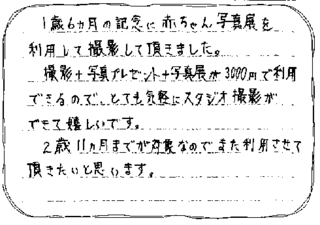 1歳6ヵ月の記念に赤ちゃん写真展を
利用して撮影して頂きました。
撮影+写真プレゼント+写真展が3000円で利用
できるので、とても気軽にスタジオ撮影が
できて嬉しいです。
2歳11ヵ月までが対象なのでまた利用させて
頂きたいと思います。